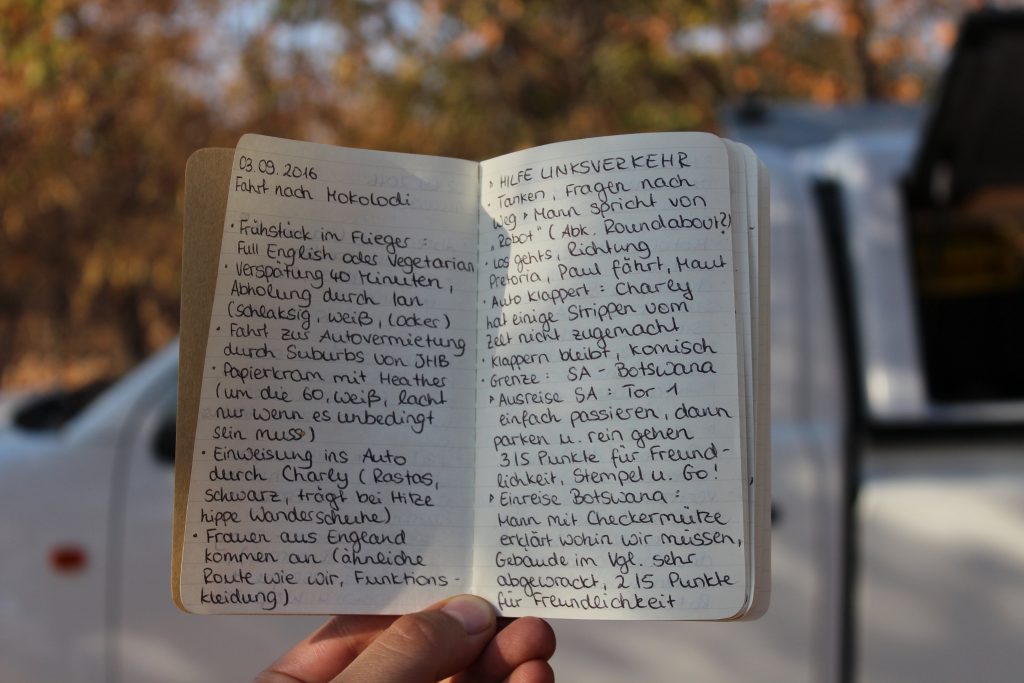 03.09.2016
Fahrt nach Mokolodi
• Frühstück im Flieger :
Full English oder Vegetarian
• Verspätung 40 Minuten,
Abholung durch Ian
(schlaksig, weiß, locker)
• Fahrt zur Autovermietung
durch Suburbs von JHB
• Papierkram mit Heather
(um die 60, weiß, lacht
nur wenn es unbedingt
sein muss)
• Einweisung ins Auto
durch Charly (Rastas,
schwarz, trägt bei Hitze
hippe Wanderschuhe)
• Frauen aus England
kommen an (ähnliche
Route wie wir, Funktions-
kleidung)
▸ HILFE LINKSVERKEHR
• Tanken, Fragen nach
Weg ▸ Mann spricht von
„Robot" (Abk. Roundabout?)
• Los gehts, Richtung
Pretoria, Paul fährt, Maut
• Auto klappert : Charly
hat einige Strippen vom
Zelt nicht zugemacht
• Klappern bleibt, komisch
• Grenze : SA - Botswana
▸ Ausreise SA : Tor 1
einfach passieren, dann
parken u. rein gehen
3/5 Punkte für Freund-
lichkeit, Stempel u. Go!
▸ Einreise Botswana :
Mann mit Checkermütze
erklärt wohin wir müssen,
Gebäude im Vgl. sehr
abgewrackt, 2/5 Punkte
für Freundlichkeit